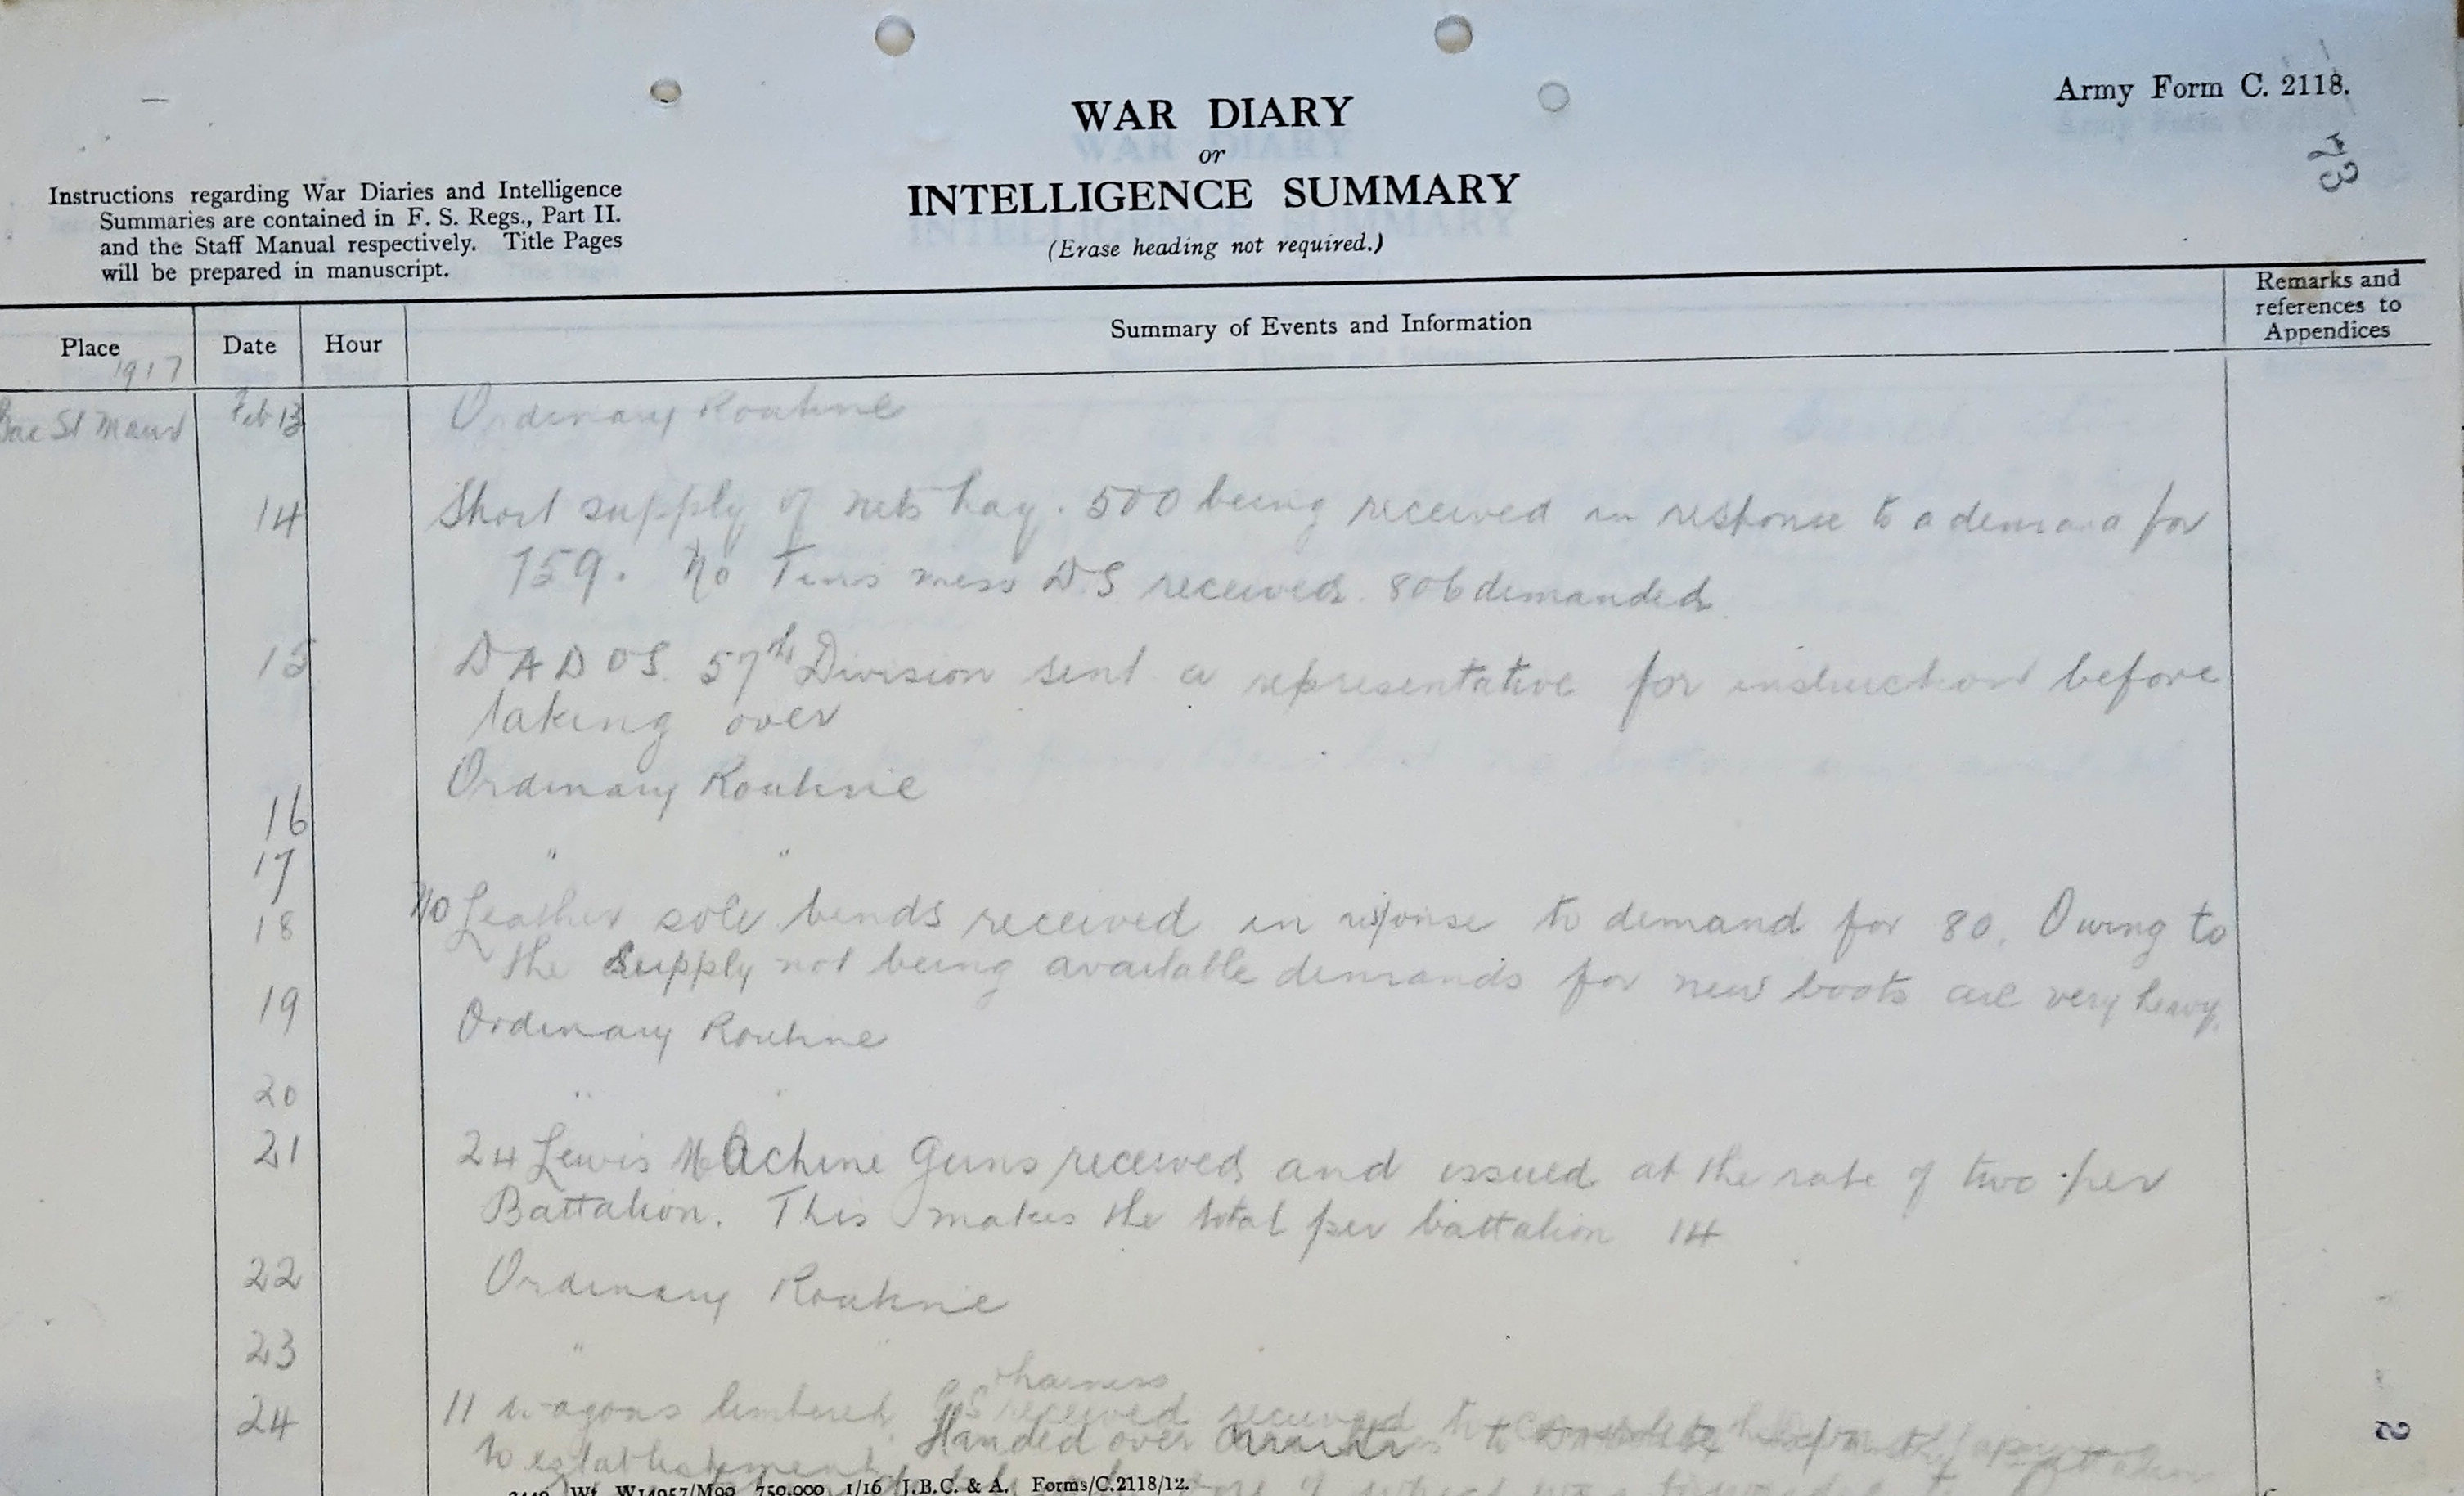 Army Form C. 2118.
73
WAR DIARY
or
INTELLIGENCE SUMMARY
(Erase heading not required.)
Instructions regarding War Diaries and Intelligence
Summaries are contained in F. S. Regs., Part II.
and the Staff Manual respectively. Title Pages
will be prepared in manuscript.
Place Date Hour Summary of Events and Information Remarks and references to Appendices
1917
Bac St Maur Feb 13 Ordinary Routine
14 Short supply of nets hay. 500 being received in response to a demand for
759. No Tins mess D.S received. 806 demanded
15 DADOS. 57th Division sent a representative for instruction before
taking over
16 Ordinary Routine
17 " "
18 No Leather sole bends received in response to demand for 80. Owing to
the supply not being available demands for new boots are very heavy.
19 Ordinary Routine
20 " "
21 24 Lewis Machine Guns received and issued at the rate of two per
Battalion. This makes the total per battalion 14
22 Ordinary Routine
23 "
harness
24 11 wagons limbered GS received received to
to establishment. Handed over to
Wt. W14957/M90 750,000 1/16 J.B.C. & A. Forms/C.2118/12.
2